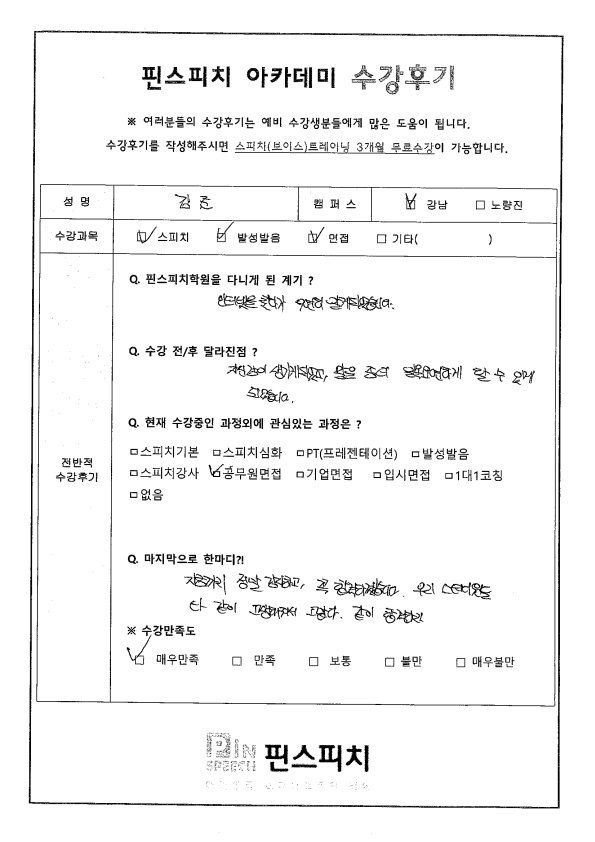 핀스피치 아카데미 수강후기
※ 여러분들의 수강후기는 예비 수강생분들에게 많은 도움이 됩니다.
수강후기를 작성해주시면 스피치(보이스)트레이닝 3개월 무료수강이 가능합니다.
성 명 김준 캠 퍼 스 ☑ 강남 □ 노량진
수강과목 ☑ 스피치 ☑ 발성발음 ☑ 면접 □ 기타( )
Q. 핀스피치학원을 다니게 된 계기 ?
인터넷을 하다가 우연히 알게되었습니다.
Q. 수강 전/후 달라진점 ?
자신감이 생기게되었고, 말을 좀더 할 수 있게
되었습니다.
Q. 현재 수강중인 과정외에 관심있는 과정은 ?
전반적
수강후기
□스피치기본 □스피치심화 □PT(프레젠테이션) □발성발음
□스피치강사 ☑공무원면접 □기업면접 □입시면접 □1대1코칭
□없음
Q. 마지막으로 한마디?!
지금까지 정말 감사하고, 꼭 합격하겠습니다. 우리 스터디원들
다 같이 고생해줘서 고맙다. 같이 합격하자
※ 수강만족도
☑ 매우만족 □ 만족 □ 보통 □ 불만 □ 매우불만
PIN
SPEECH
핀스피치